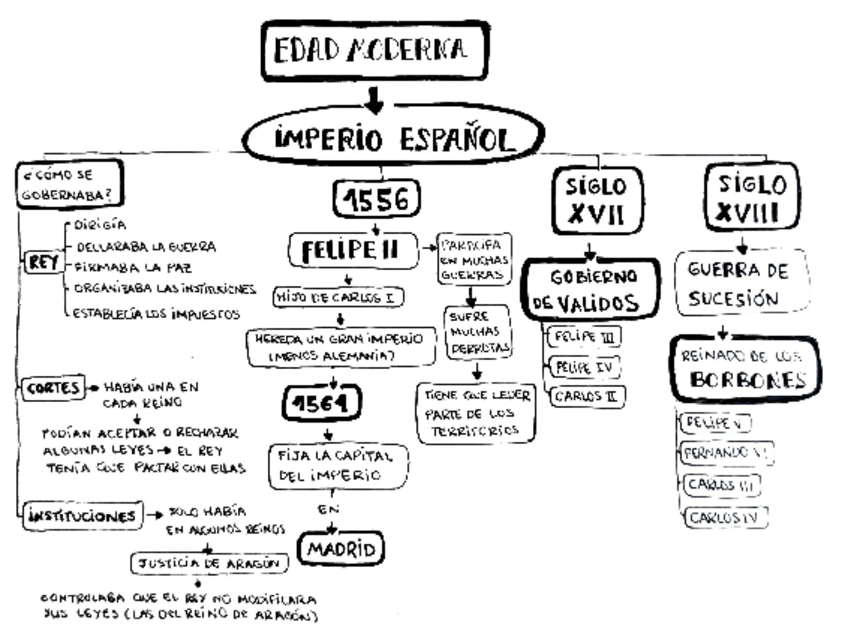 EDAD MODERNA
IMPERIO ESPAÑOL
¿CÓMO SE
GOBERNABA?
REY
DIRIGÍA
DECLARABA LA GUERRA
FIRMABA LA PAZ
ORGANIZABA LAS INSTITUCIONES
ESTABLECÍA LOS IMPUESTOS
CORTES
HABÍA UNA EN
CADA REINO
PODÍAN ACEPTAR O RECHAZAR
ALGUNAS LEYES → EL REY
TENÍA QUE PACTAR CON ELLAS
INSTITUCIONES
SOLO HABÍA
EN ALGUNOS REINOS
JUSTICIA DE ARAGÓN
CONTROLABA QUE EL REY NO MODIFICARA
SUS LEYES (LAS DEL REINO DE ARAGÓN)
1556
FELIPE II
HIJO DE CARLOS I
HEREDA UN GRAN IMPERIO
(MENOS ALEMANIA)
1561
FIJA LA CAPITAL
DEL IMPERIO
EN
MADRID
PARTICIPA
EN MUCHAS
GUERRAS
SUFRE
MUCHAS
DERROTAS
TIENE QUE CEDER
PARTE DE LOS
TERRITORIOS
SIGLO
XVII
GOBIERNO
DE VALIDOS
FELIPE III
FELIPE IV
CARLOS II
SIGLO
XVIII
GUERRA DE
SUCESIÓN
REINADO DE LOS
BORBONES
FELIPE V
FERNANDO VI
CARLOS III
CARLOS IV